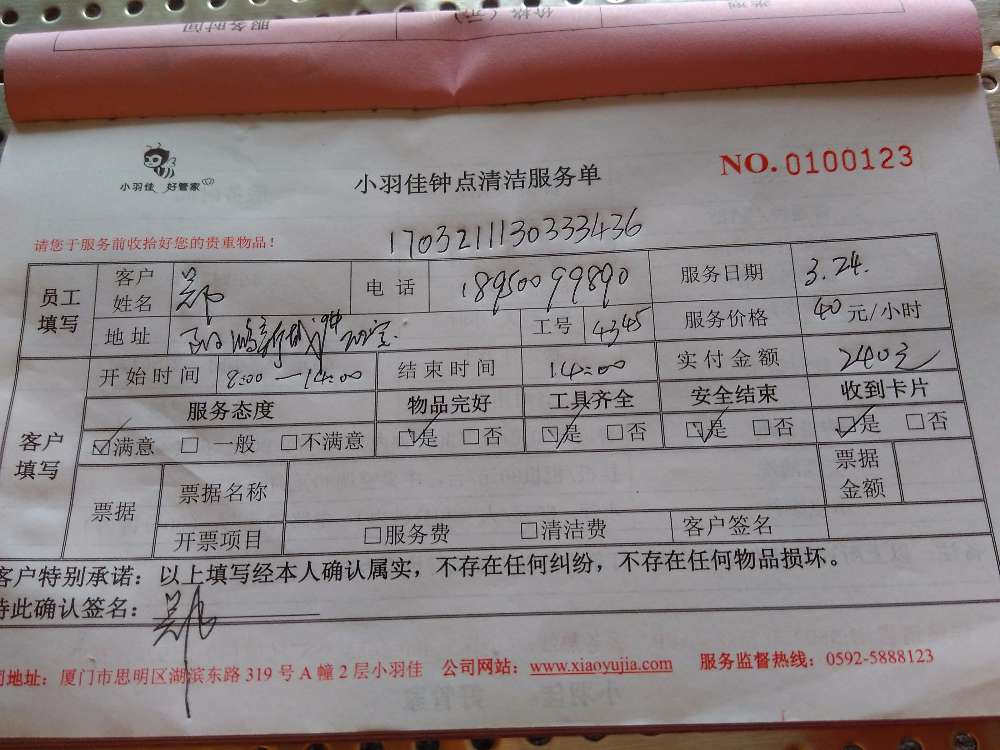 服务时间 价格（元） 类别
小羽佳 好管家
小羽佳钟点清洁服务单
NO.0100123
请您于服务前收拾好您的贵重物品！
1703211130333436
员工填写 客户姓名 郑 电话 18950099890 服务日期 3.24.
地址 工号 4345 服务价格 40元/小时
客户填写 开始时间 8:00—14:00 结束时间 14:00 实付金额 240元
服务态度 物品完好 工具齐全 安全结束 收到卡片
☑满意 □一般 □不满意 ☑是 □否 ☑是 □否 ☑是 □否 ☑是 □否
票据 票据名称 票据金额
开票项目 □服务费 □清洁费 客户签名
客户特别承诺：以上填写经本人确认属实，不存在任何纠纷，不存在任何物品损坏。
特此确认签名：郑
司地址：厦门市思明区湖滨东路319号A幢2层小羽佳 公司网站：www.xiaoyujia.com 服务监督热线：0592-5888123